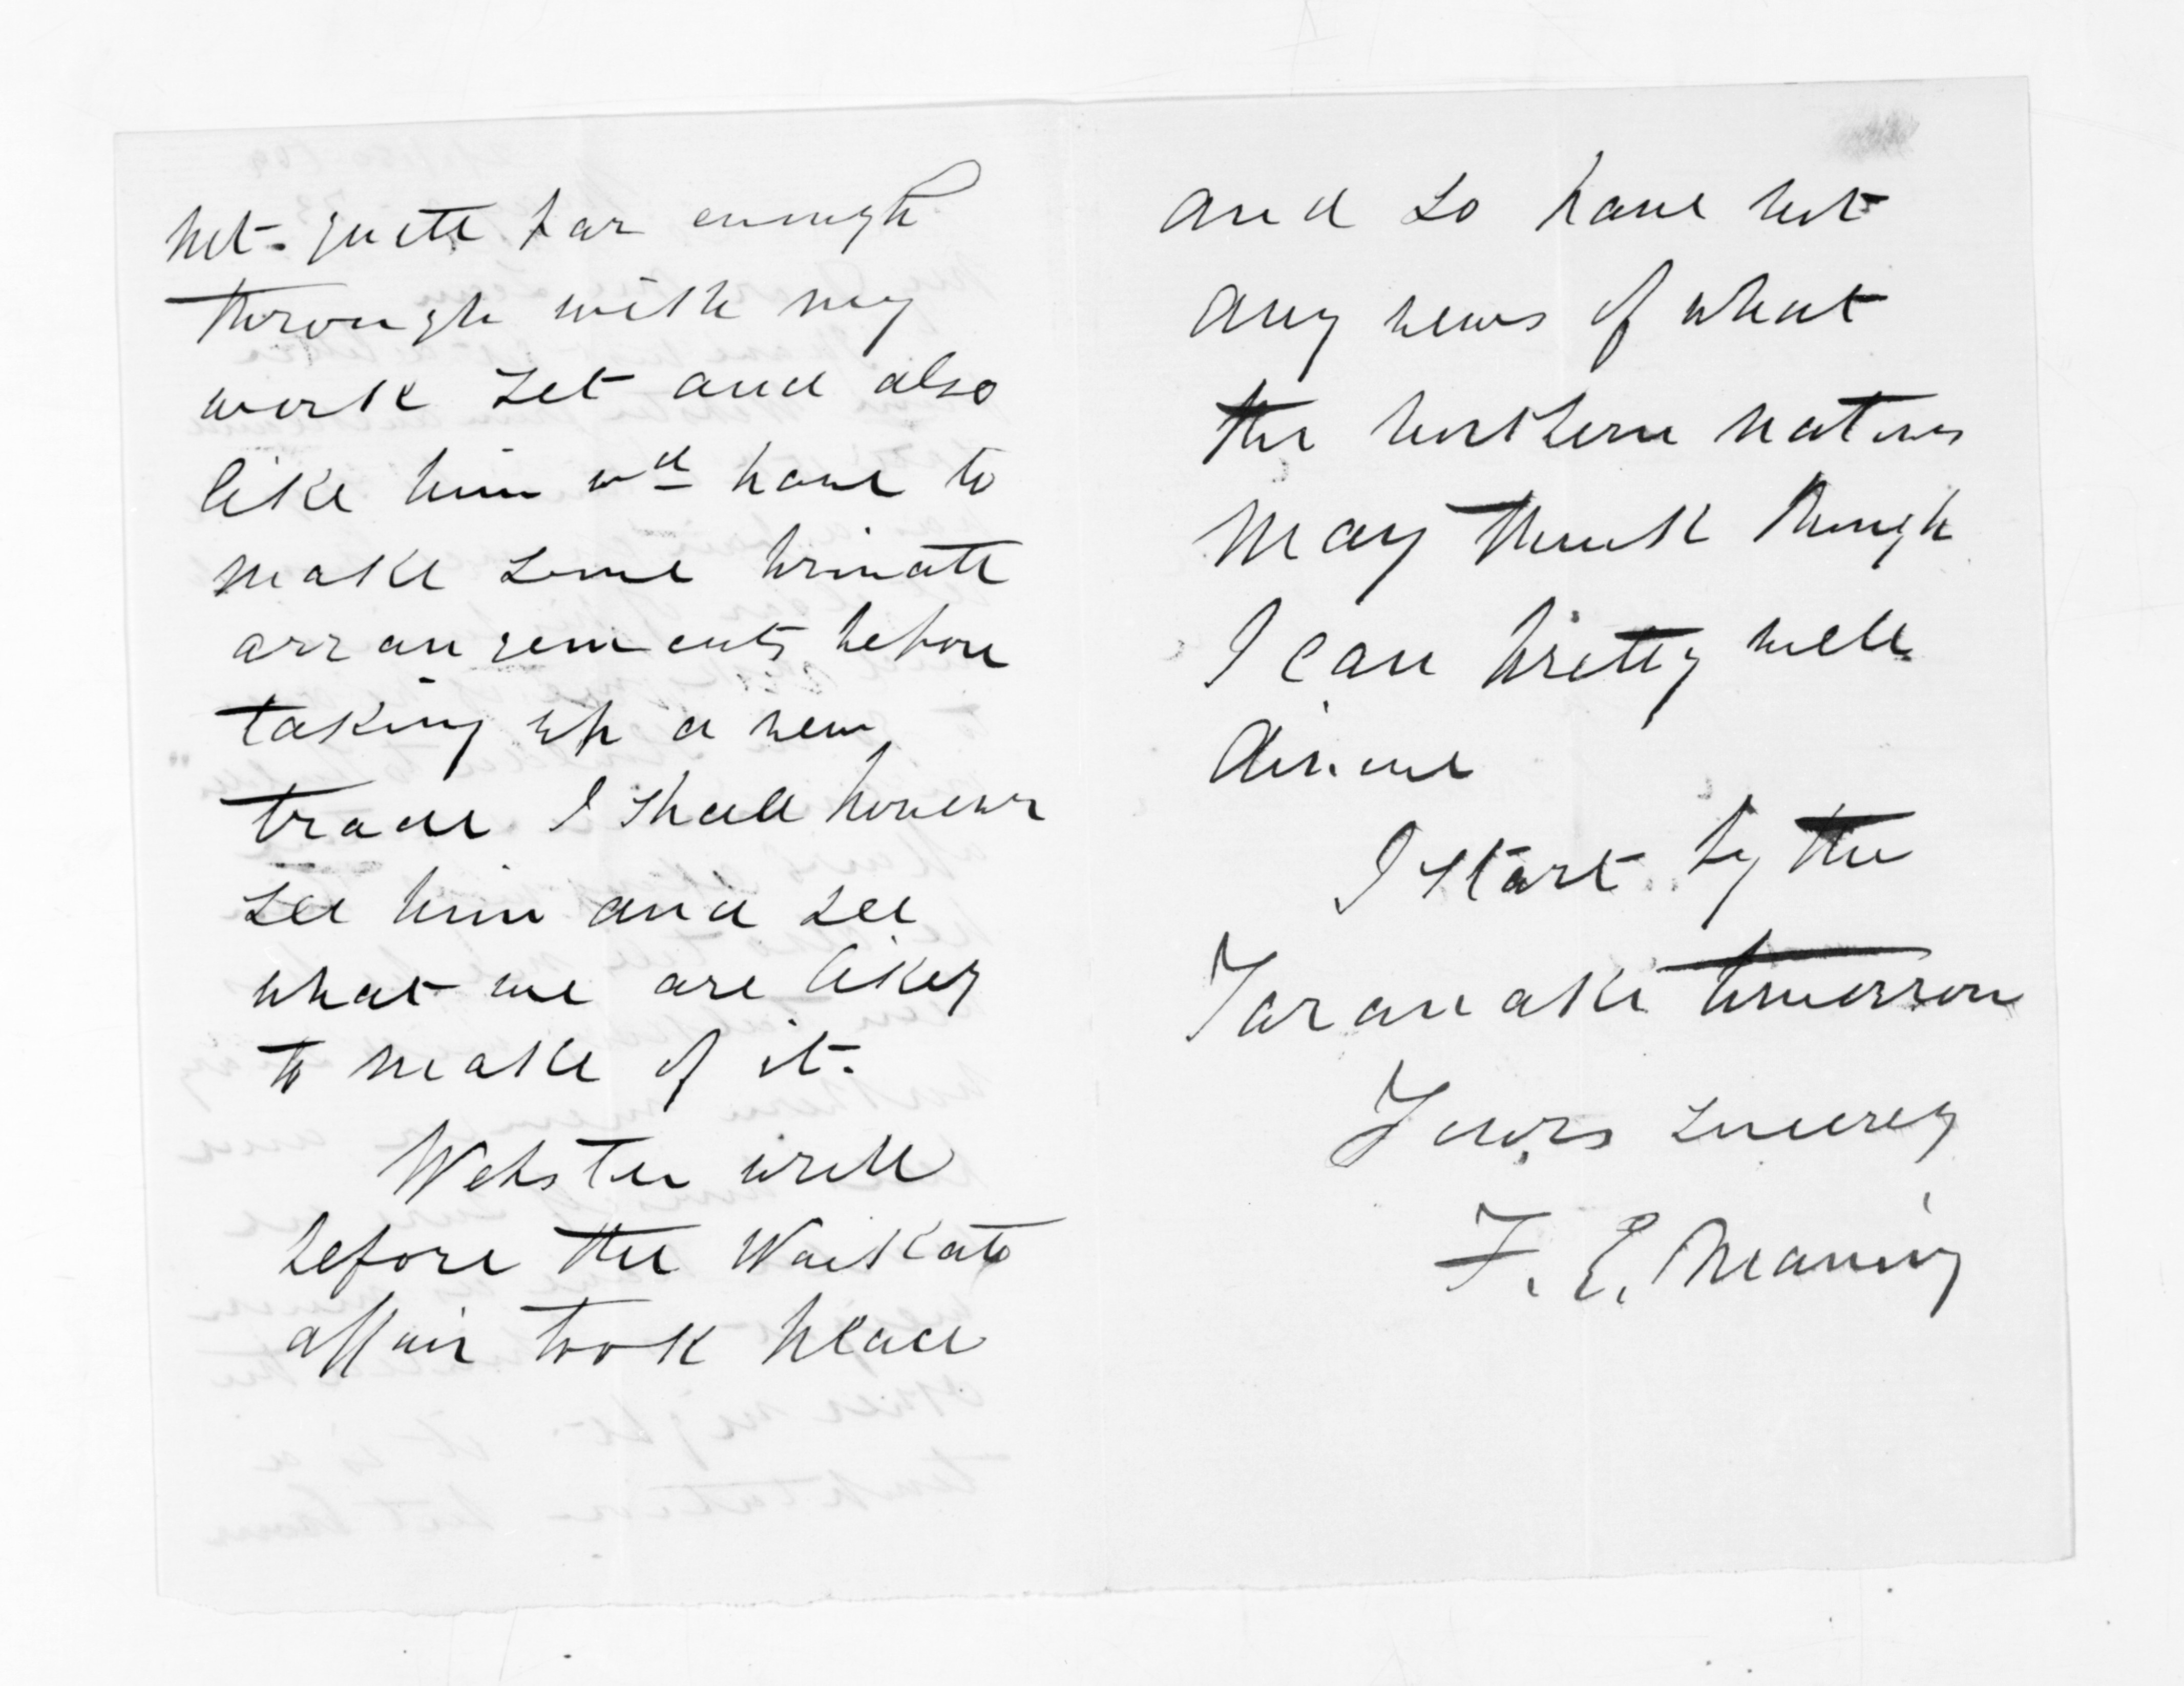 not quite far enough
through with my
work yet and also
like him wd have to
make some private
arrangements before
taking up a new
trade I shall however
see him and see
what we are likey
to make of it.
Webster
before the Waikato
affair took place
and so have not
any news of what
the northern natives
may think though
I can pretty well
divine
I start by the
Taranaki tomorrow
Yours sincerey
F. E. Maning